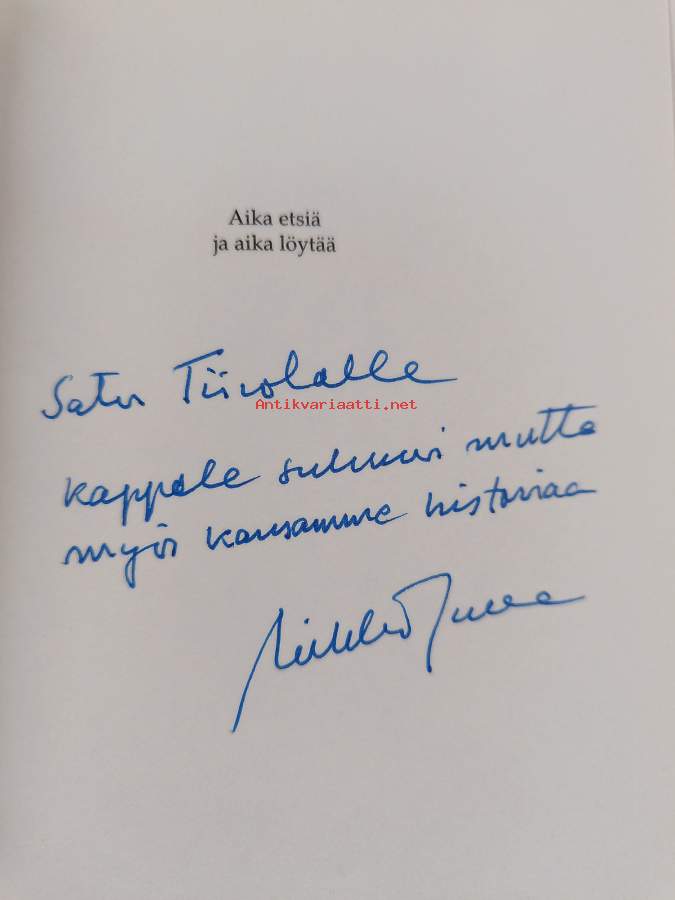 Aika etsiä
ja aika löytää
Satu Tiirolalle
Antikvariaatti.net
kappale sukuni mutta
myös kansamme historiaa